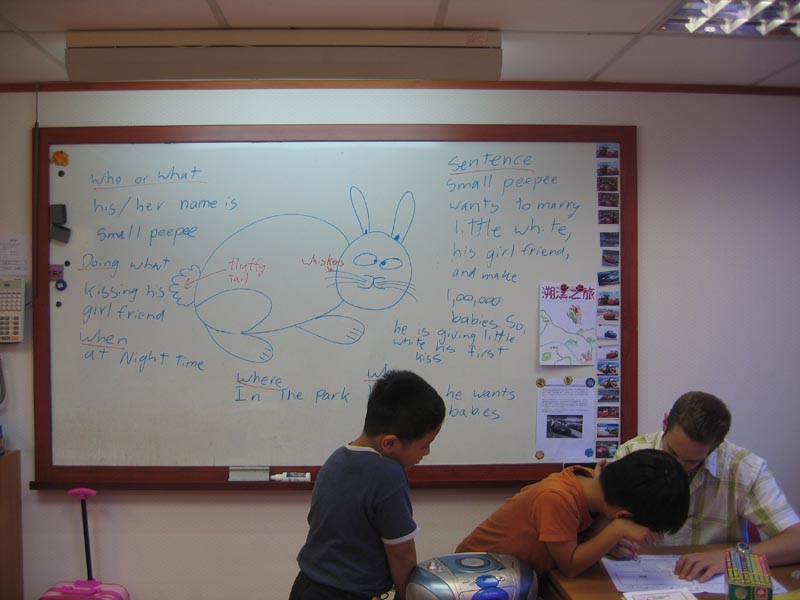 Who or What
his/her name is
small peepee
Doing what
kissing his
girl friend
When
at Night time
fluffy
tail
whiskers
Where
In The park
Sentence
small peepee
wants to marry
little white,
his girl friend,
and make
1,00,000
babies. So,
he is giving little
white his first
kiss.
he wants
babies
溯溪之旅